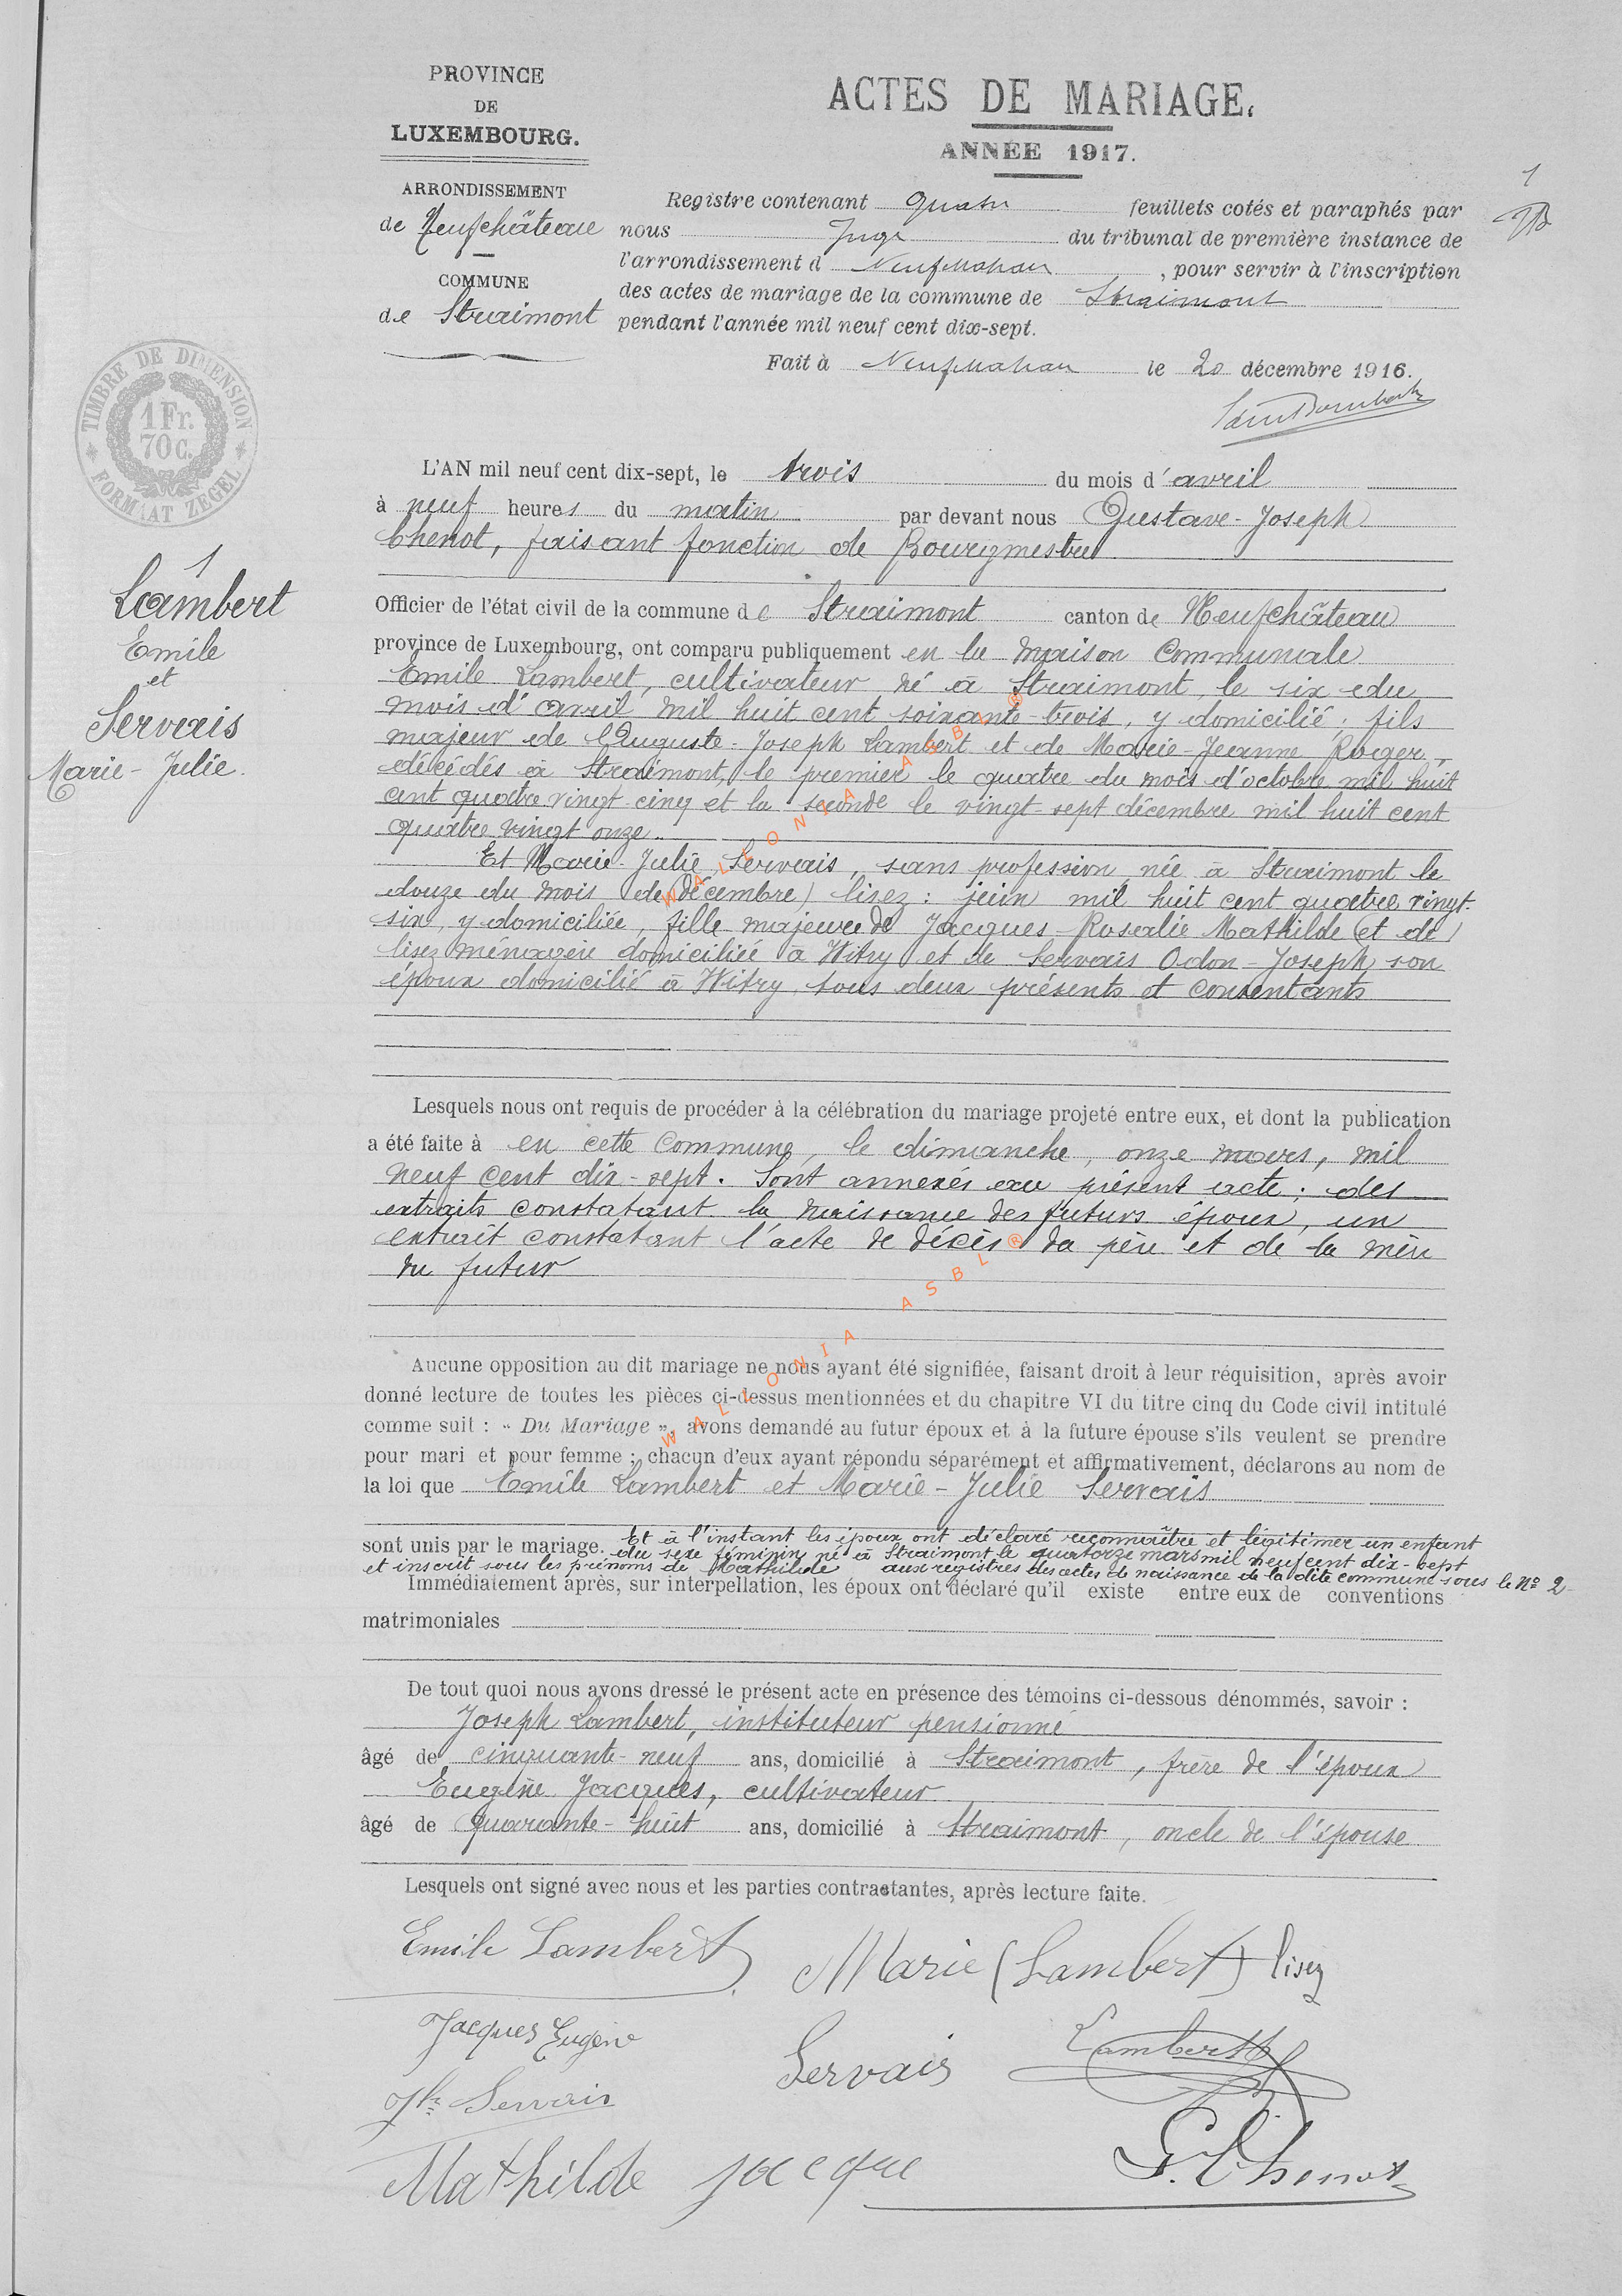 PROVINCE
DE
LUXEMBOURG.
ARRONDISSEMENT
de Neufchâteau
COMMUNE
de Straimont
ACTES DE MARIAGE.
ANNÉE 1917.
1
Registre contenant quatre feuillets cotés et paraphés par
nous Juge du tribunal de première instance de
l'arrondissement d Neufchateau, pour servir à l'inscription
des actes de mariage de la commune de Straimont
pendant l'année mil neuf cent dix-sept.
Fait à Neufchateau le 20 décembre 1916.
TIMBRE DE DIMENSION
1 Fr.
70 c.
FORMAAT ZEGEL
1
Lambert
Emile
et
Servais
Marie-Julie.
L'AN mil neuf cent dix-sept, le trois du mois d'avril
à neuf heures du matin par devant nous Gustave-Joseph
Chenot, faisant fonction de Bourgmestre
Officier de l'état civil de la commune de Straimont canton de Neufchâteau
province de Luxembourg, ont comparu publiquement en la maison Communale
Emile Lambert, cultivateur né à Straimont, le six du
mois d'avril mil huit cent soixante-trois, y domicilié; fils
majeur de Auguste-Joseph Lambert et de Marie-Jeanne Roger,
décédés à Straimont, le premier le quatre du mois d'octobre mil huit
cent quatre vingt-cinq et la seconde le vingt-sept décembre mil huit cent
quatre vingt onze..
Et Marie-Julie Servais, sans profession née à Straimont le
douze du mois de (décembre) lisez: juin mil huit cent quatre vingt-
six, y domiciliée, fille majeure de Jacques Rosalie Mathilde (et de)
lisez ménagère domiciliée à Witry et de Servais Odon-Joseph son
époux domicilié à Witry, tous deux présents et consentants
Lesquels nous ont requis de procéder à la célébration du mariage projeté entre eux, et dont la publication
a été faite à en cette Commune, le dimanche, onze mars, mil
neuf cent dix-sept. Sont annexés au présent acte; des
extraits constatant la naissance des futurs époux, un
extrait constatant l'acte de décès du père et de la mère
du futur
Aucune opposition au dit mariage ne nous ayant été signifiée, faisant droit à leur réquisition, après avoir
donné lecture de toutes les pièces ci-dessus mentionnées et du chapitre VI du titre cinq du Code civil intitulé
comme suit : « Du Mariage », avons demandé au futur époux et à la future épouse s'ils veulent se prendre
pour mari et pour femme ; chacun d'eux ayant répondu séparément et affirmativement, déclarons au nom de
la loi que Emile Lambert et Marie-Julie Servais
sont unis par le mariage. Et à l'instant les époux ont déclaré reconnaître et légitimer un enfant
du sexe féminin né à Straimont le quatorze mars mil neuf cent dix-sept
et inscrit sous les prénoms de Mathilde aux registres des actes de naissance de la dite commune sous le No 2
Immédiatement après, sur interpellation, les époux ont déclaré qu'il existe entre eux de conventions
matrimoniales
De tout quoi nous avons dressé le présent acte en présence des témoins ci-dessous dénommés, savoir :
Joseph Lambert, instituteur pensionné
âgé de cinquante-neuf ans, domicilié à Straimont, frère de l'époux
Eugène Jacques, cultivateur
âgé de quarante-huit ans, domicilié à Straimont, oncle de l'épouse
Lesquels ont signé avec nous et les parties contractantes, après lecture faite.
Emile Lambert Marie (Lambert) lisez
Jacques Eugène Servais Lambert
Jh Servais
Mathilde jacque G. Chenot
WALLONIA ASBL ®
WALLONIA ASBL ®